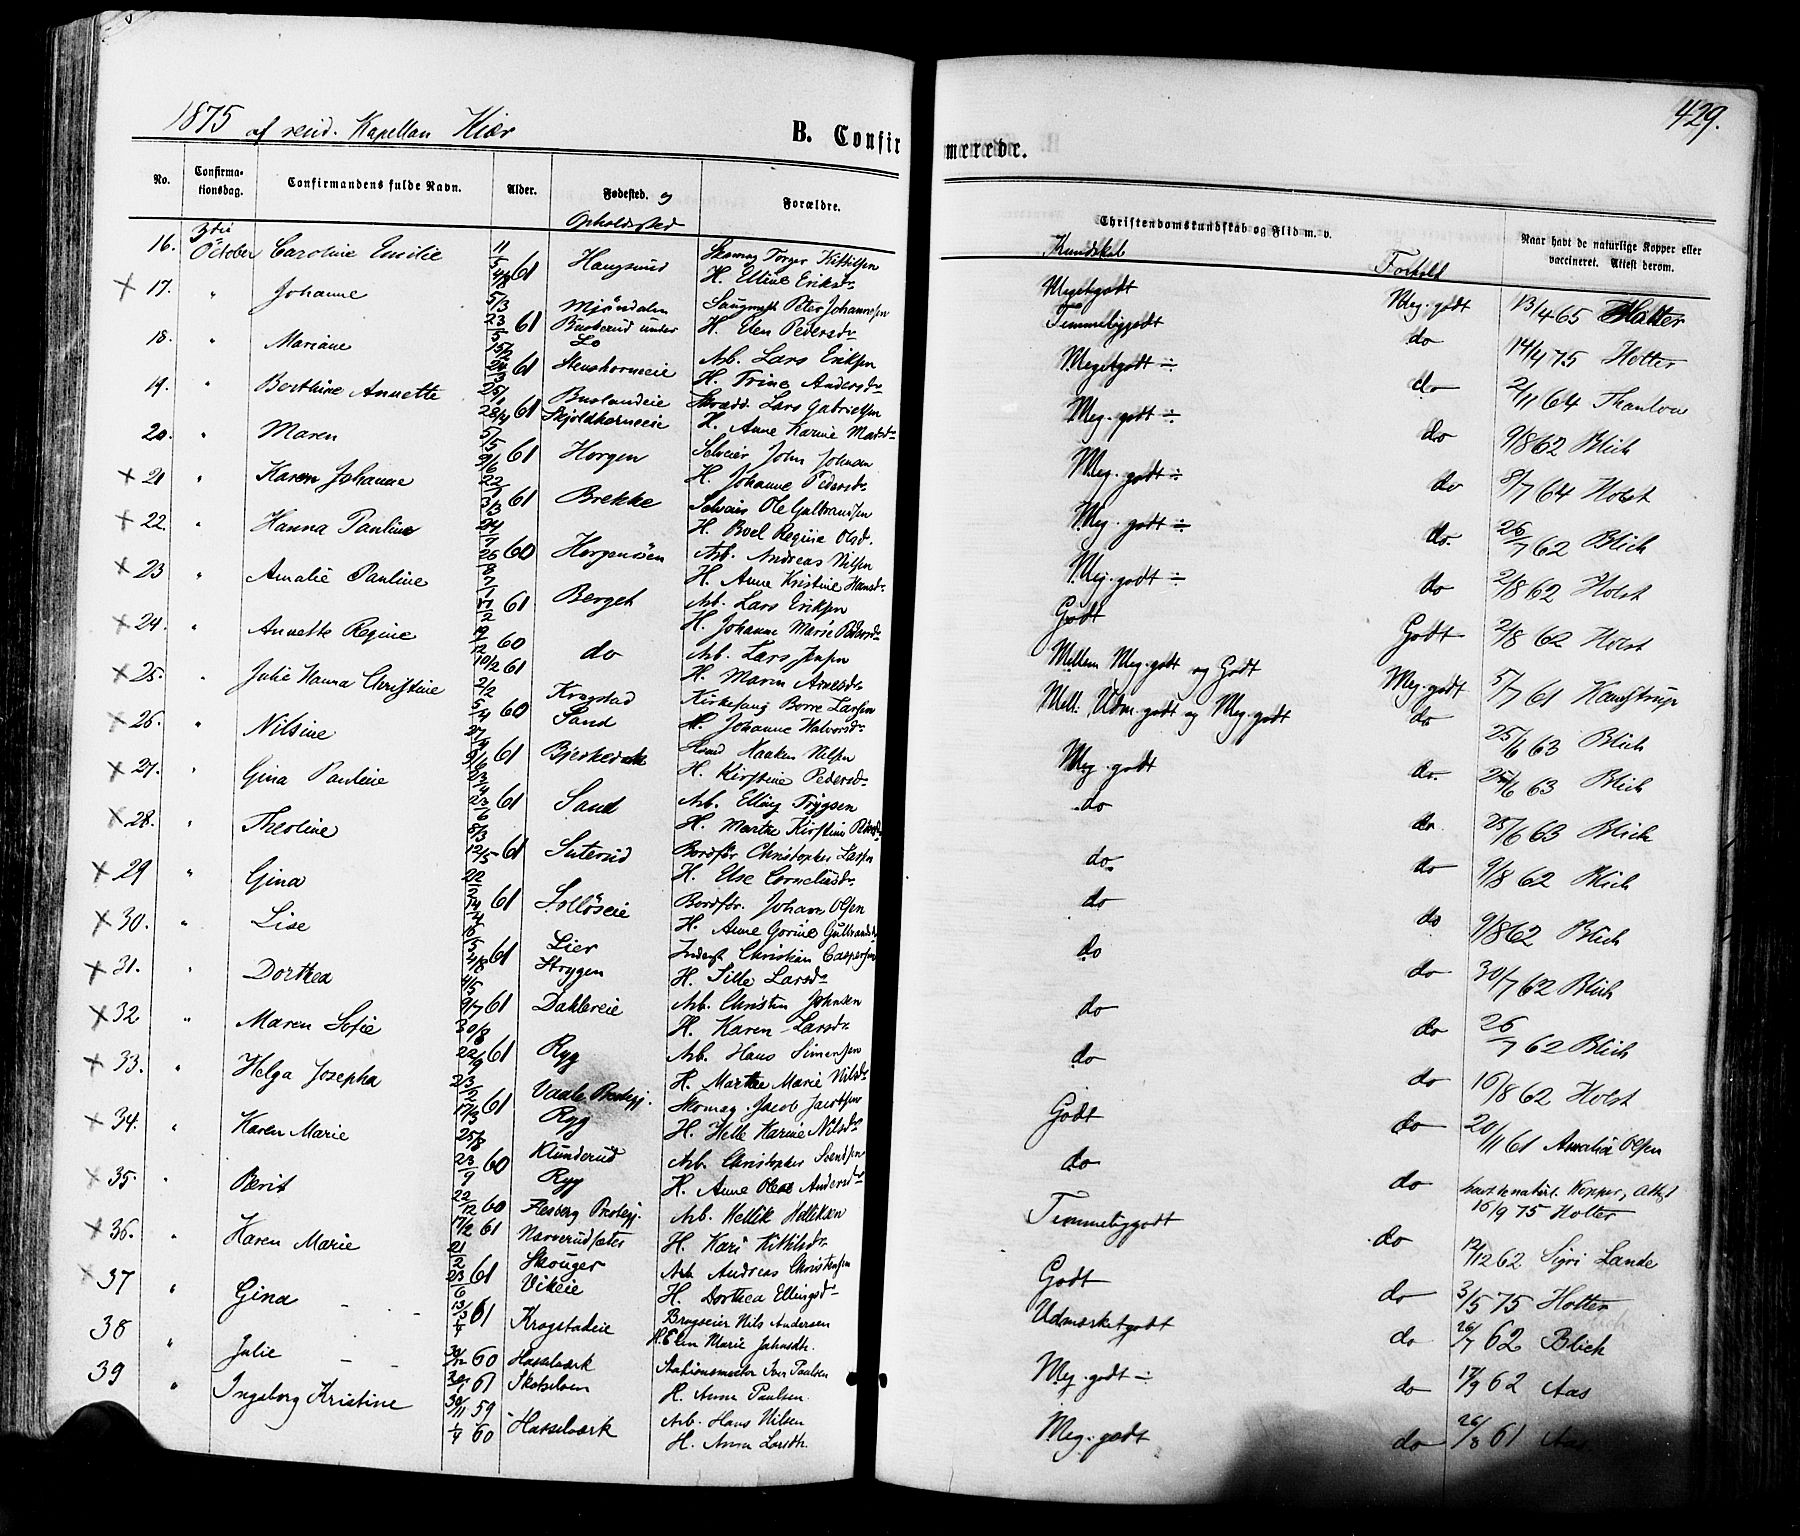 1875 af resid. Kapellan Kiær
B. Confirmerede.
429.
No. Confirmationsdag. Confirmandens fulde Navn. Alder. Fødested. og Opholdssted Forældre. Christendomskundskab og Flid m. v. Kundskab Forhold Naar havt de naturlige Kopper eller vaccineret. Attest derom.
16. 3die October Caroline Emilie 11/5 4/8 61 Haugsund Skomag Torger Kittilsen H. Elline Eriksdr Megetgodt Meg. godt 13/4 65 Holter
17. " Johanne 5/3 23/5 61 Mjöndalen Buskerud under Lo Saugmest Peter Johannesen H. Elen Pedersdr Temmeliggodt do 14/4 75 Holter
18. " Mariane 61 Steushorneie Arb. Lars Eriksen H. Trine Andersdr Megetgodt ÷ do 2/11 64 Thaulow
19. " Berthine Annette 25/1 28/4 61 Buslandeie Skjoldhorneie Skrædd. Lars Gabrielsen H. Anne Karine Madsdr Meg. godt ÷ do 9/8 62 Blich
20. " Maren 5/5 9/6 61 Horgen Selveier John Johnsen H. Johanne Pedersdr Meg. godt ÷ do 8/7 64 Holst
21 " Karen Johanne 3/3 61 Brekke Selveier Ole Gulbrandsen H. Boel Regine Olsdr. Meg. godt ÷ do. 26/7 62 Blich
22. " Hanna Pauline 60 Horgenöien Arb. Andreas Nilsen H. Anne Kristine Hansdr Meg. godt ÷ do 2/8 62 Holst
23 " Amalie Pauline 61 Berget Arb. Lars Eriksen H. Johanne Marie Pedersdr Godt Godt 2/8 62 Holst
24. " Annette Regine 19/12 60 10/2 61 do Arb. Lars Jensen H. Maren Arnesdr Mellem Meg. godt og Godt Meg. godt 5/7 61
25. " Julie Hanna Christine 2/2 5/4 60 Krogstad Sand Kirkesang Borre Larsen H. Johanne Halvorsdr Mell. Udm. godt og Meg. godt do 25/6 63 Blich
26. " Nilsine 61 Bjerkedok Haaken Nilsen H. Kirstine Pedersdr Meg. godt do. 25/6 63 Blich
27. " Gina Pauline 23/6 61 Sand Arb. Elling Trygsen H. Marthe Kirstine do do 25/6 63 Blich
28. " Theoline 8/3 12/5 61 Suterud Bordfør Christopher Larsen H. Else Corneliusdr do. do 9/8 62 Blich
29 " Gina 61 Solløseie Bordfør. Johan Olsen H. Anne Gorine Gulbrandsdr do do 9/8 62 Blich
30. " Lise 6/5 4/8 61 Lier Strygen Inderst Christian Caspersen H. Sille Larsdr do do 30/7 62 Blich
31. " Dorthea 4/5 9/7 61 Dahlereie Arb. Christen Johnsen H. Karen Larsdr do do 26/7 62 Blich
32 " Maren Sofie 30/8 22/9 61 Ryg Arb. Hans Simensen H. Marthe Marie Nilsdr do do 16/8 62 Holst
33. " Helga Josepha 23/2 17/3 61 Vaale Prestegj. Ryg Skomag. Jacob Jacobsen H. Helle Karine Nilsdr Godt do 20/11 61 Amalia Olsen
34. " Karen Marie 25/8 23/9 60 Klunderud Ryg Arb. Christopher Svendsen H. Anne Olea Andersdr do do havt de naturl. Kopper, Attest 16/9 75 Holter
35. " Berit 22/12 60 17/2 61 Flesberg Prestegj. Narverudsæter Arb. Hellik Helliksen H. Kari Kittilsdr Temmeliggodt do 12/12 62 Sigri Lande
36. " Karen Marie 21/2 23/6 61 Skouger Vikeie Arb. Andreas Christensen H. Dorthea Ellingsdr Godt do 3/5 75 Holter
37 " Gina - - - 13/3 1/4 61 Krogstadeie Brugseier Nils Andersen H. Elen Marie Johnsdtr. Udmærketgodt do 26/7 62 Blich
38 " Julie - - 30/12 60 61 Hasselværk Skotseloen Stationsmester Iver Paulsen H. Anna Paulsen. Meg. godt ÷ do 17/9 62 Aas
39 " Ingeborg Kristine 30/11 59 1/4 60 Hasselværk Arb. Hans Nilsen H. Anna Larsdtr. Meg. godt do 26/8 61 Aas